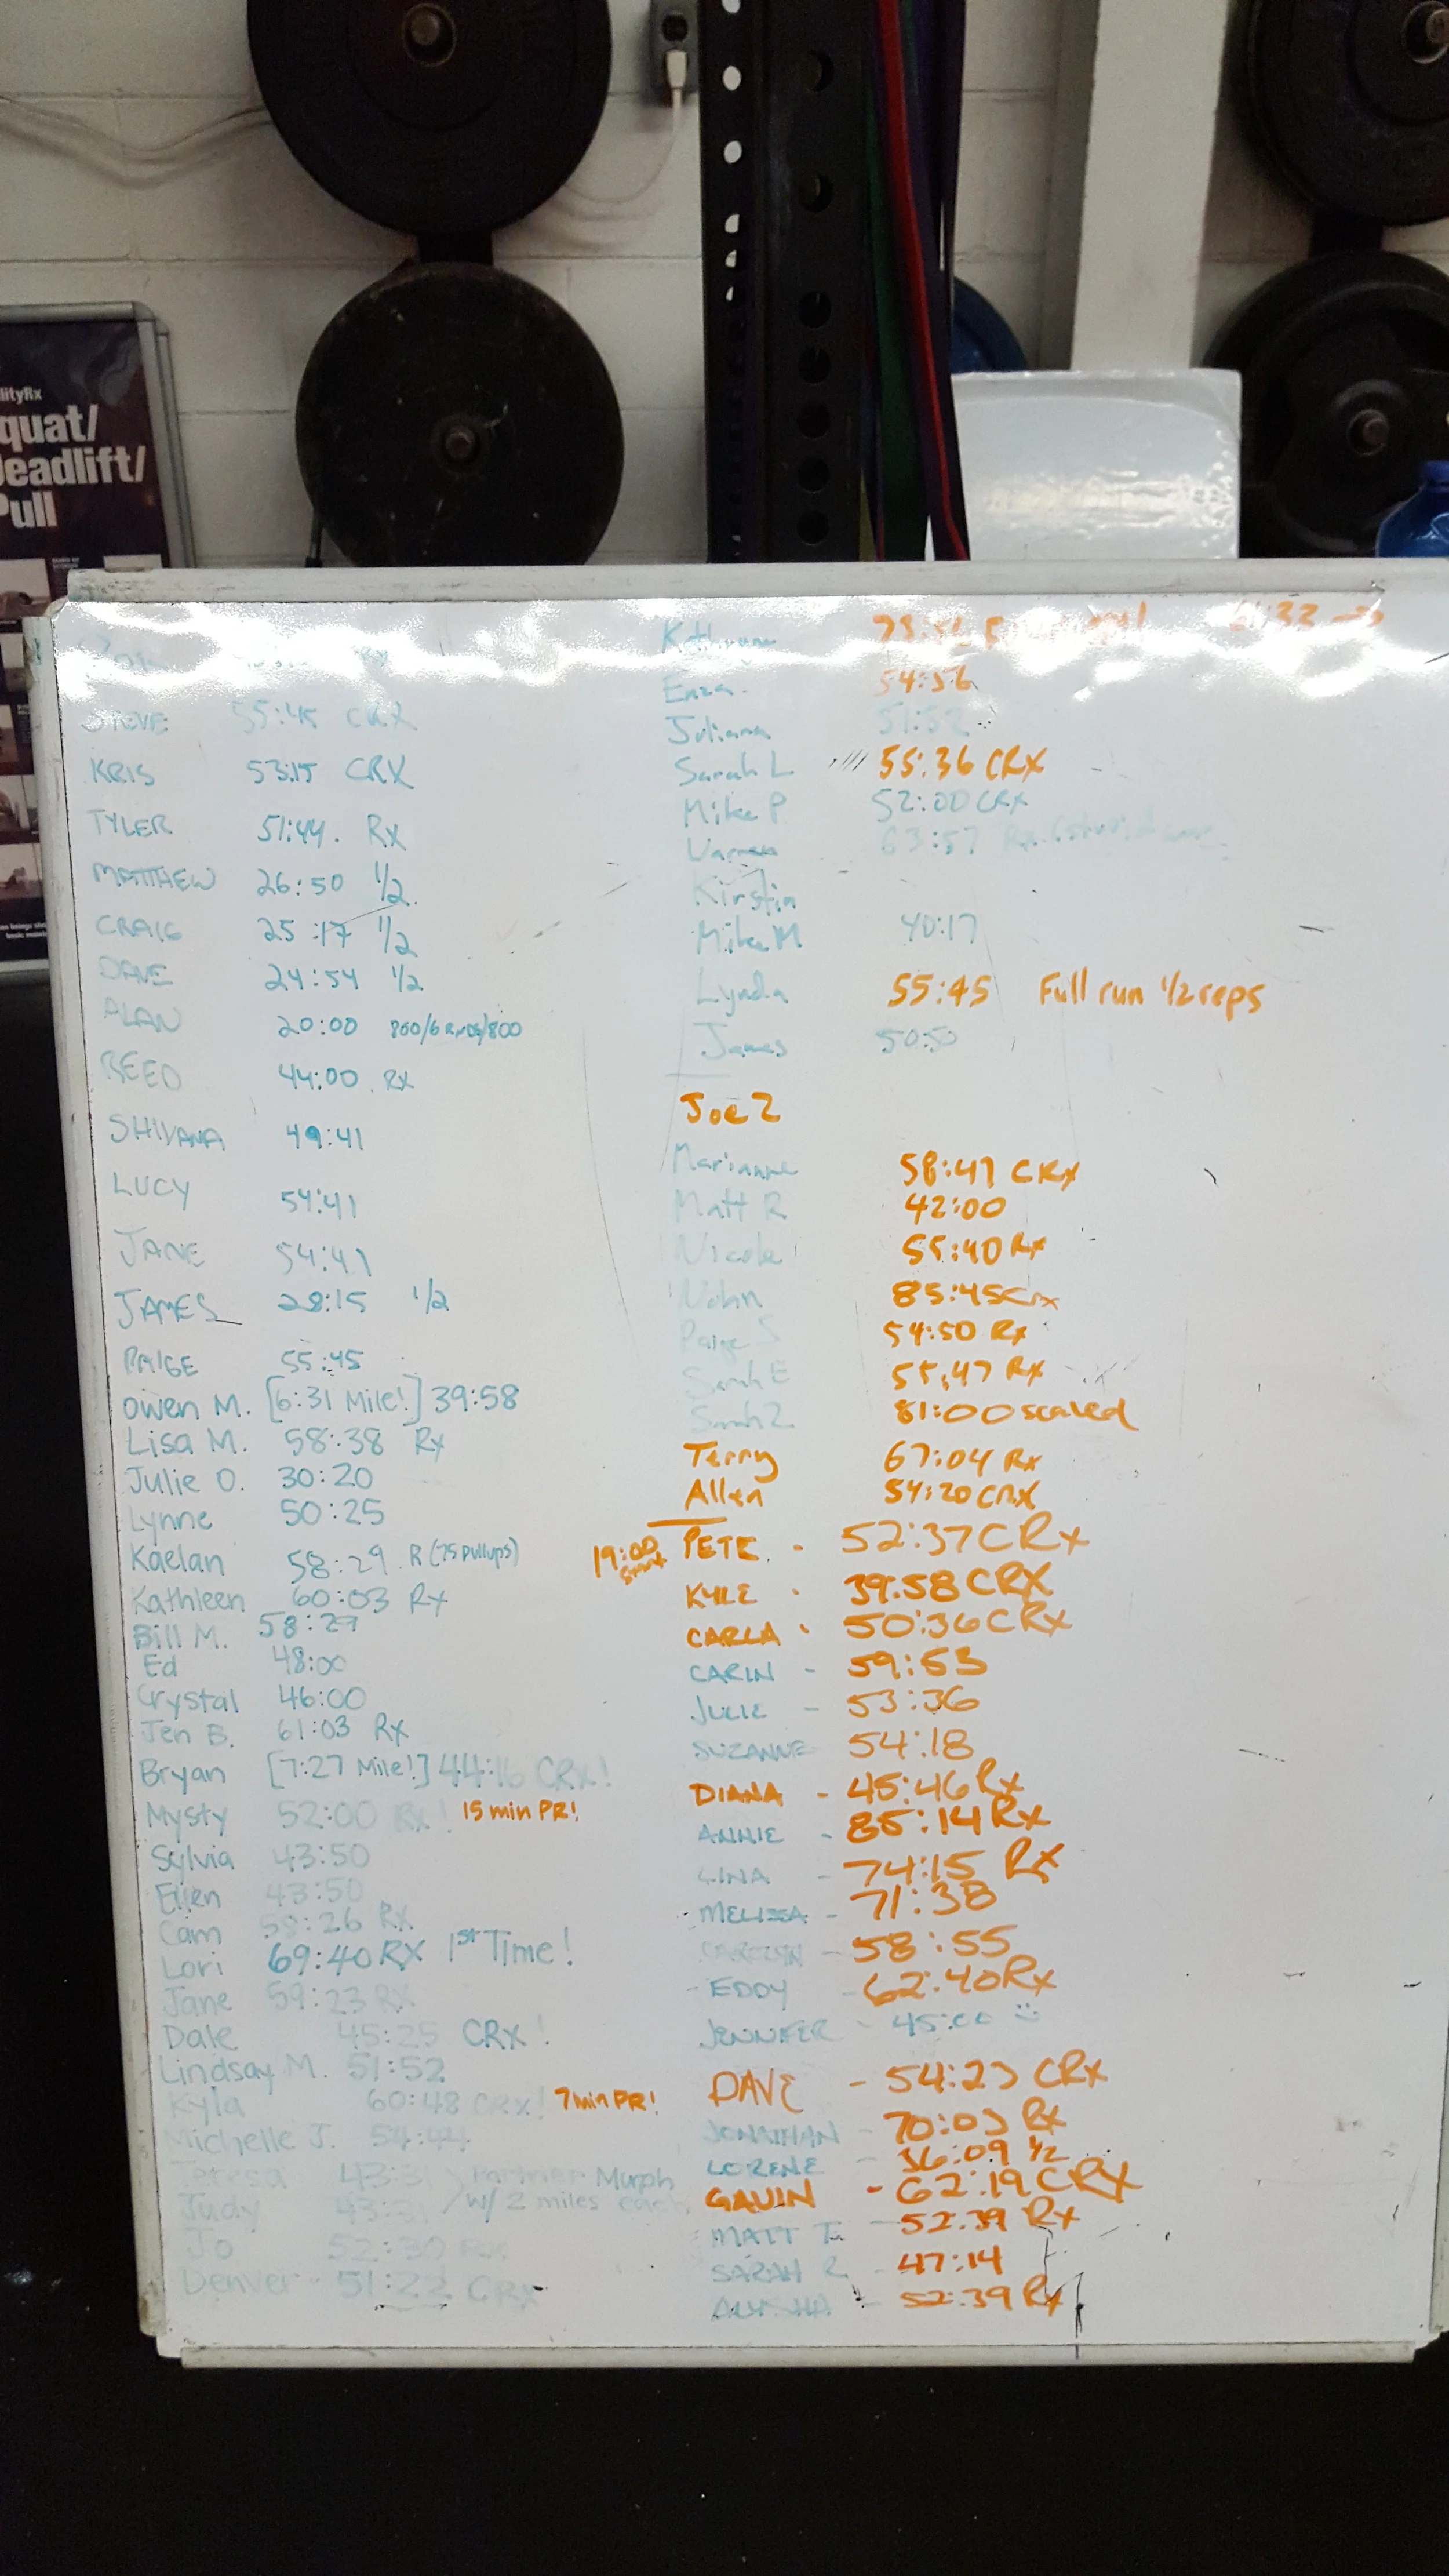 lityRx
quat/
Deadlift/
Pull
STEVE 55:45 CRX
KRIS 53:15 CRX
TYLER 51:44. Rx
MATTHEW 26:50 1/2.
CRAIG 25:17 1/2
DAVE 24:54 1/2
ALAN 20:00 800/6 Rnds/800
REED 44:00. Rx
SHIVANA 49:41
LUCY 54:41
JANE 54:41
JAMES 28:15 1/2
PAIGE 55:45
Owen M. [6:31 Mile!] 39:58
Lisa M. 58:38 Rx
Julie O. 30:20
Lynne 50:25
Kaelan 58:29 R (75 pullups)
Kathleen 60:03 Rx
Bill M. 58:29
Ed 48:00
Crystal 46:00
Jen B. 61:03 Rx
Bryan [7:27 Mile!] 44:16 CRx!
Mysty 52:00 Rx! 15 min PR!
Sylvia 43:50
Ellen 43:50
Cam 59:26 Rx
Lori 69:40 RX 1st Time!
Jane 59:23 RX
Dale 45:25 CRx!
Lindsay M. 51:52
Kyla 60:48 CRx! 7 min PR!
Michelle J. 54:44
Teresa 43:31 Partner Murph
Judy 43:31 w/ 2 miles each
Jo 52:39 Rx
Denver - 51:22 CRx
Kathryn
Enza. 54:56
Juliana 51:52
Sarah L 55:36 CRX
Mike P 52:00 CRX
63:57 Rx
Kirstin
Mike M 40:17
Lynda 55:45 Full run 1/2 reps
James 50:50
Joe Z
Marianne 58:47 CRx
Matt R 42:00
Nicole 55:40 Rx
John 85:45 CRx
Paige S 54:50 Rx
Sarah E 55:47 Rx
Sarah Z 81:00 scaled
Terry 67:04 Rx
Allen 54:20 CRX
19:00 Start
PETE. - 52:37 CRx
KYLE - 39:58 CRX
CARLA - 50:36 CRx
CARIN - 59:53
JULIE - 53:36
SUZANNE 54:18
DIANA - 45:46 Rx
ANNIE - 85:14 Rx
LINA - 74:15 Rx
MELISSA - 71:38
58:55
EDDY - 62:40 Rx
JENNIFER - 45:00 ☺
DAVE - 54:23 CRx
JONATHAN - 70:03 Rx
LORENE - 36:09 1/2
GAVIN - 62:19 CRX
MATT T. - 52:39 Rx
SARAH R - 47:14
ALYSHA - 52:39 Rx